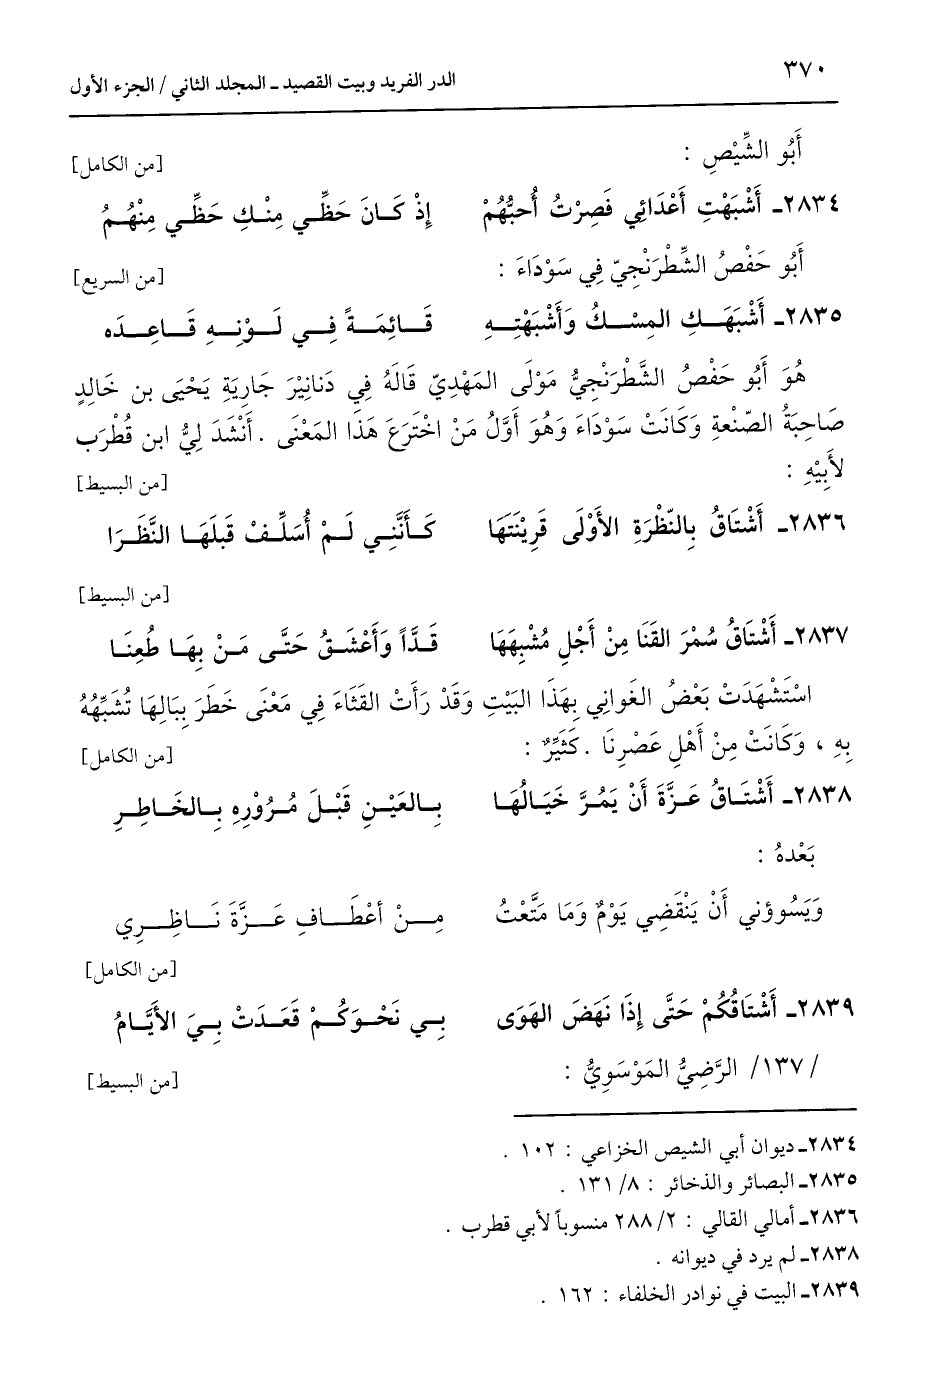 ٣٧٠
الدر الفريد وبيت القصيد ـ المجلد الثاني / الجزء الأول
أَبُو الشِّيْصِ :
[من الكامل]
٢٨٣٤ـ أَشْبَهْتِ أَعْدَائِي فَصِرْتُ أُحبُّهُمْ إِذْ كَـانَ حَظِّـي مِنْـكِ حَظِّـي مِنْهُـمُ
أَبُو حَفْصُ الشِّطْرَنْجِيّ فِي سَوْدَاءَ :
[من السريع]
٢٨٣٥ـ أَشْبَهَـكِ المِسْـكُ وَأَشْبَهْتِـهِ قَـائِمَـةً فِـي لَـوْنِـهِ قَـاعِـدَه
هُوَ أَبُو حَفْصُ الشَّطْرَنْجِيُّ مَوْلَى المَهْدِيّ قَالَهُ فِي دَنَانِيْرَ جَارِيَةِ يَحْيَى بن خَالِدٍ
صَاحِبَةُ الصّنْعةِ وَكَانَتْ سَوْدَاءَ وَهُوَ أَوَّلُ مَنْ اخْتَرَعَ هَذَا المَعْنَى . أَنْشَدَ لِيُّ ابن قُطْرَب
لأَبِيْهِ :
[من البسيط]
٢٨٣٦ـ أَشْتَاقُ بِالنّظْرَةِ الأَوْلَى قَرِيْنَتَهَا كَـأَنَّنِـي لَـمْ أُسَلِّـفْ قَبلَهَـا النَّظَـرَا
[من البسيط]
٢٨٣٧ـ أَشْتَاقُ سُمْرَ القَنَا مِنْ أَجْلِ مُشْبِهَهَا قَـدَّاً وَأَعْشَـقُ حَتَّـى مَـنْ بِهَـا طُعِنَـا
اسْتَشْهَدَتْ بَعْضُ الغَوانِي بِهَذَا البَيْتِ وَقَدْ رَأَتْ القَثَاءَ فِي مَعْنَى خَطَرَ بِبَالِهَا تُشَبِّهُهُ
بِهِ ، وَكَانَتْ مِنْ أَهْلِ عَصْرِنَا . كَثَيِّرٌ :
[من الكامل]
٢٨٣٨ـ أَشْتَـاقُ عَـزَّةَ أَنْ يَمُـرَّ خَيَـالُهَـا بِـالعَيْـنِ قَبْـلَ مُـرُوْرِهِ بِـالخَـاطِـرِ
بَعْدهُ :
وَيَسُوؤني أَنْ يَنْقَضِي يَوْمٌ وَمَا مَتَّعْتُ مِـنْ أعْطَـافِ عَـزَّةَ نَـاظِـرِي
[من الكامل]
٢٨٣٩ـ أَشْتَاقُكُمْ حَتَّى إِذَا نَهَضَ الهَوَى بِـي نَحْـوَكُـمْ قَعَـدَتْ بِـيَ الأَيَّـامُ
/١٣٧/ الرَّضِيُّ المَوْسَوِيُّ :
[من البسيط]
٢٨٣٤ـ ديوان أبي الشيص الخزاعي : ١٠٢ .
٢٨٣٥ـ البصائر والذخائر : ٨/ ١٣١ .
٢٨٣٦ـ أمالي القالي : ٢/ ٢٨٨ منسوباً لأبي قطرب .
٢٨٣٨ـ لم يرد في ديوانه .
٢٨٣٩ـ البيت في نوادر الخلفاء : ١٦٢ .